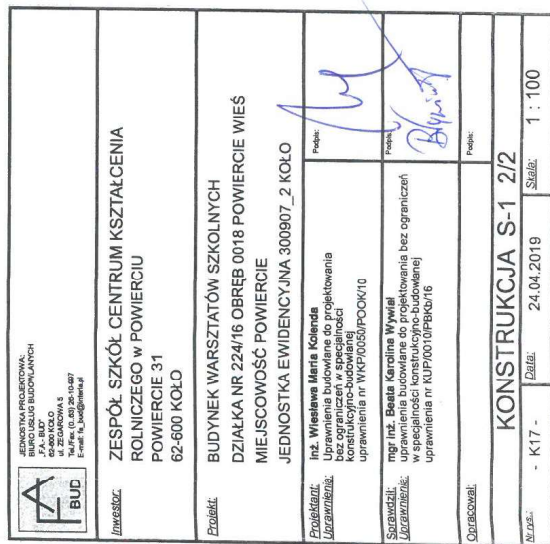 FA
BUD
JEDNOSTKA PROJEKTOWA:
BIURO USŁUG BUDOWLANYCH
„F.A.- BUD"
62-600 KOŁO
ul. ZEGAROWA 5
Tel./Fax: (0..63) 26-10-697
E-mail: fa_bud@interia.pl
Inwestor:
ZESPÓŁ SZKÓŁ CENTRUM KSZTAŁCENIA
ROLNICZEGO w POWIERCIU
POWIERCIE 31
62-600 KOŁO
Projekt:
BUDYNEK WARSZTATÓW SZKOLNYCH
DZIAŁKA NR 224/16 OBRĘB 0018 POWIERCIE WIEŚ
MIEJSCOWOŚĆ POWIERCIE
JEDNOSTKA EWIDENCYJNA 300907_2 KOŁO
Projektant: inż. Wiesława Maria Kolenda
Uprawnienia: Uprawnienia budowlane do projektowania
bez ograniczeń w specjalności
konstrukcyjno-budowlanej
uprawnienia nr WKP/0050/POOK/10
Podpis:
Sprawdził: mgr inż. Beata Karolina Wywiał
Uprawnienia: uprawnienia budowlane do projektowania bez ograniczeń
w specjalności konstrukcyjno-budowlanej
uprawnienia nr KUP/0010/PBKb/16
Podpis:
Opracował:
Podpis:
KONSTRUKCJA S-1 2/2
Nr rys.: - K17 - Data: 24.04.2019 Skala: 1 : 100